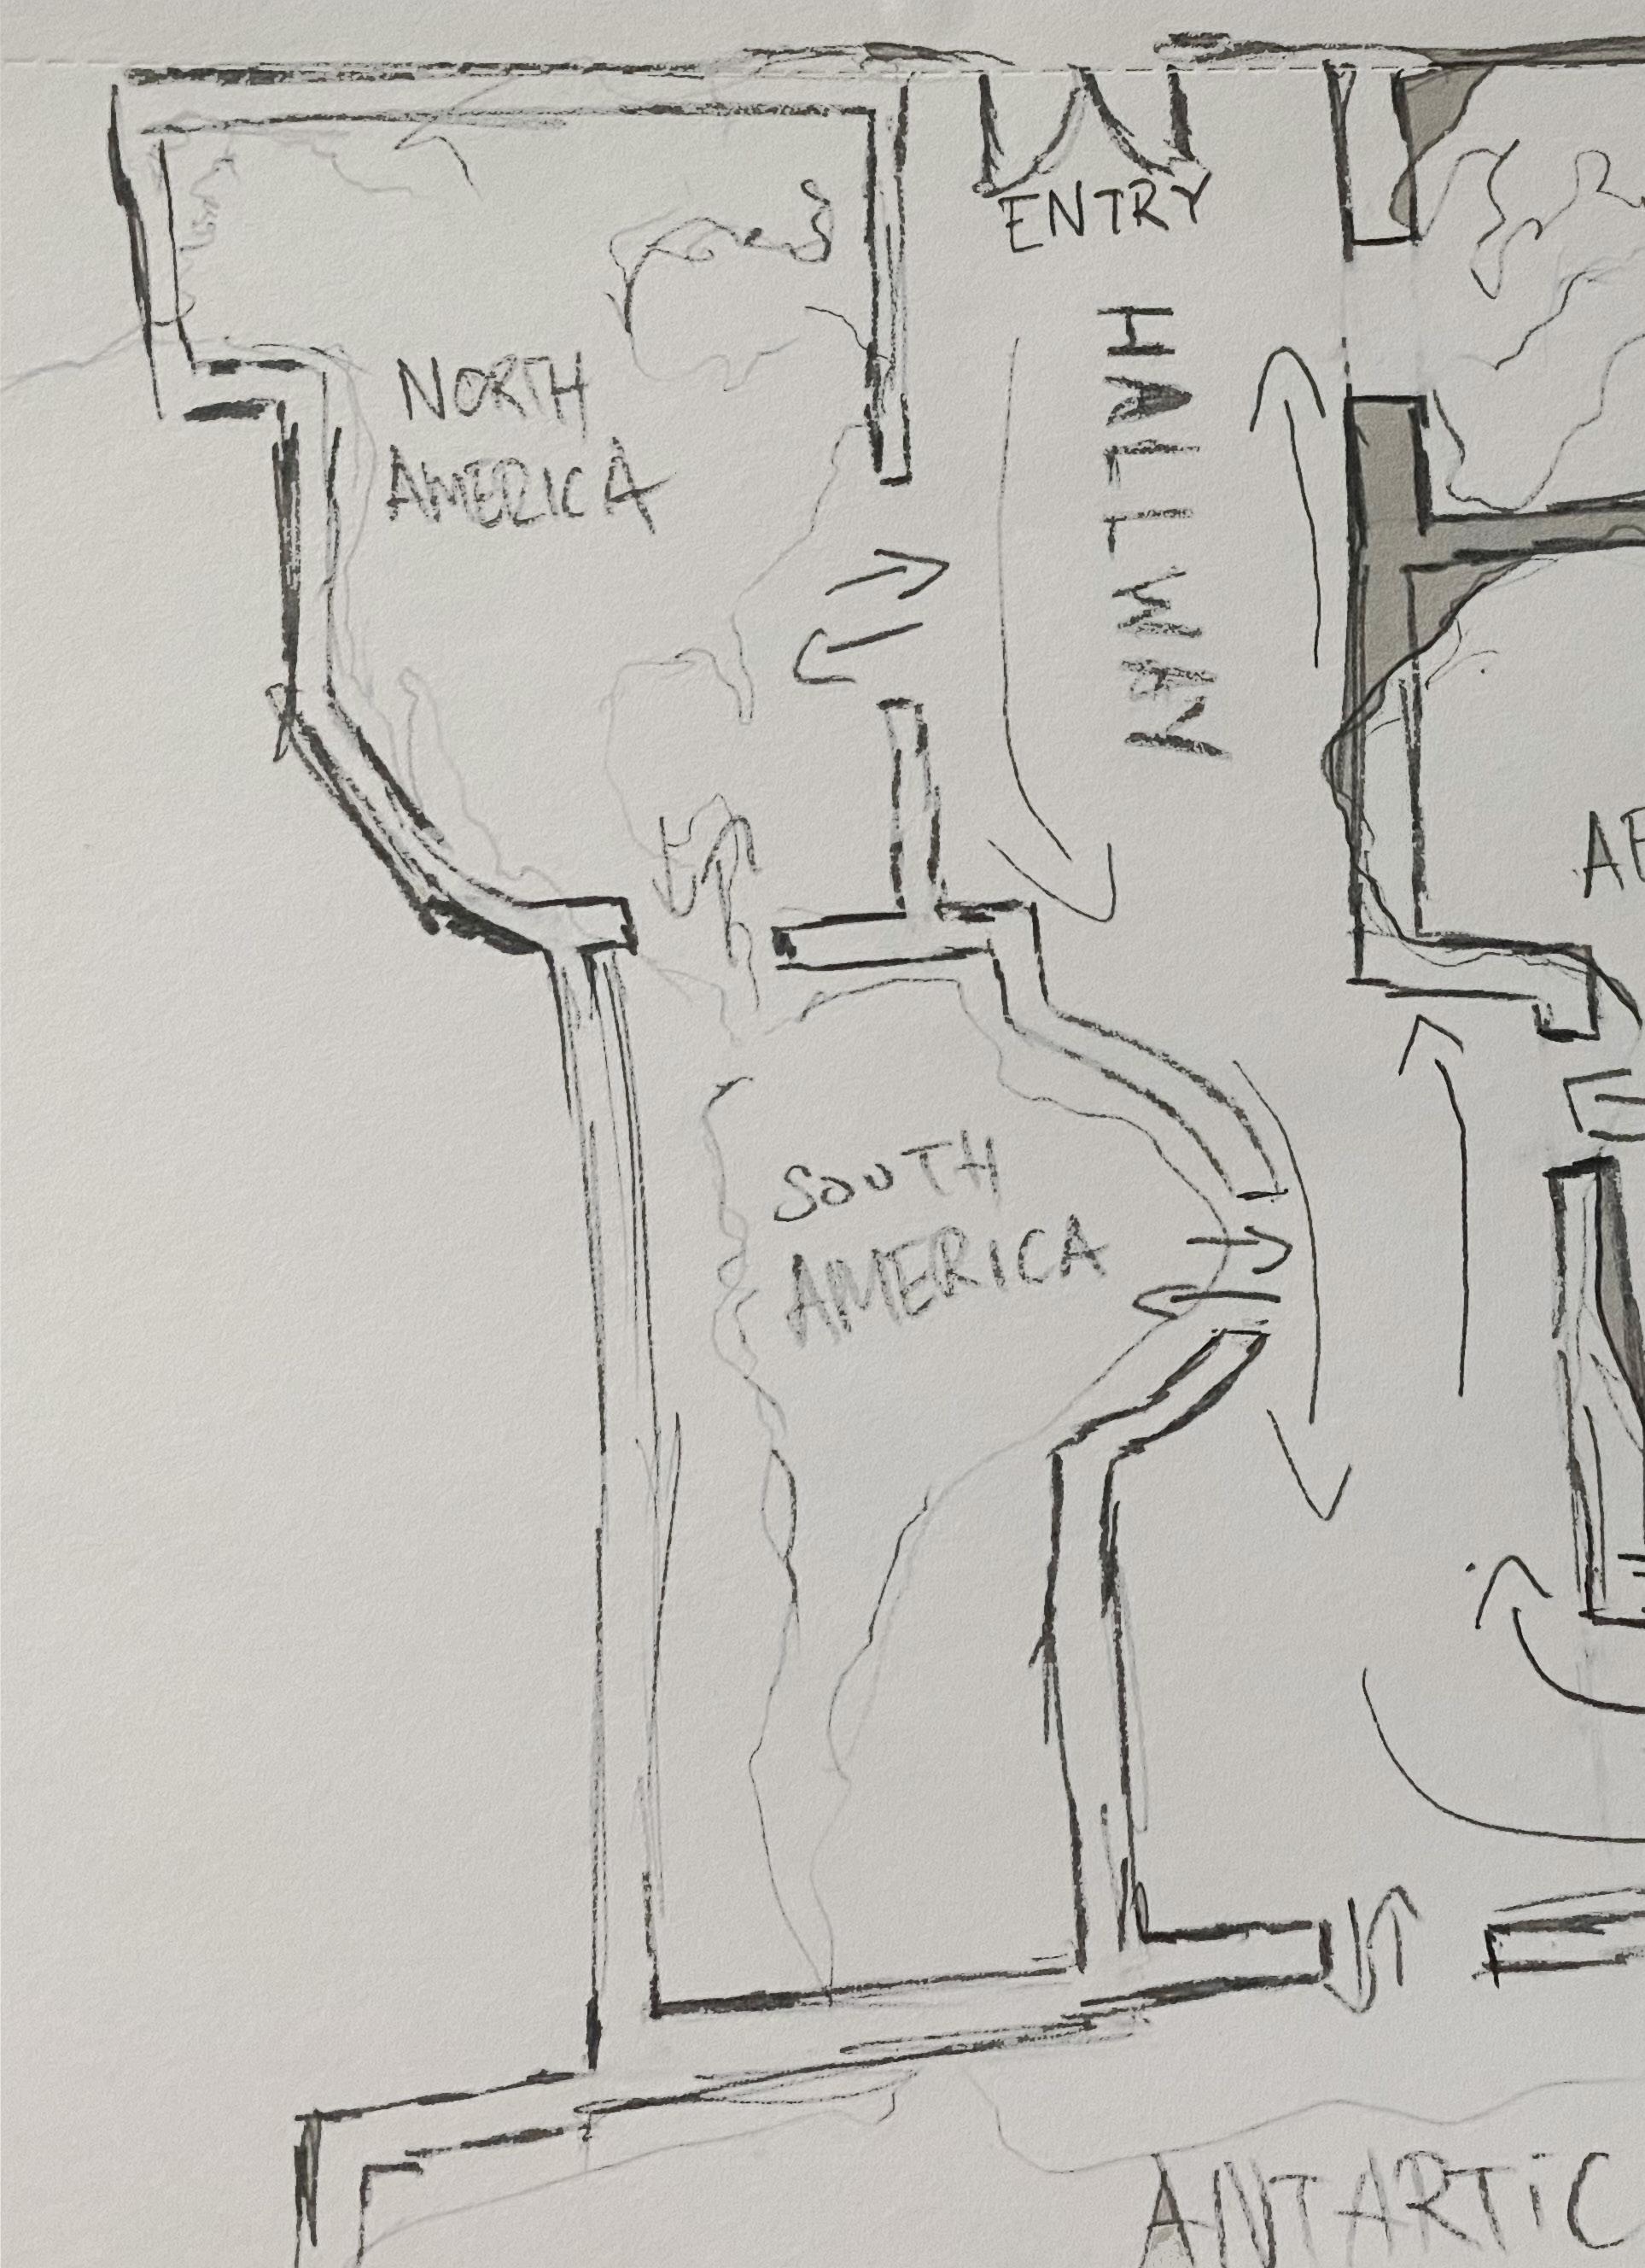 ENTRY
HALLWAY
NORTH
AMERICA
SOUTH
AMERICA
ANTARTIC